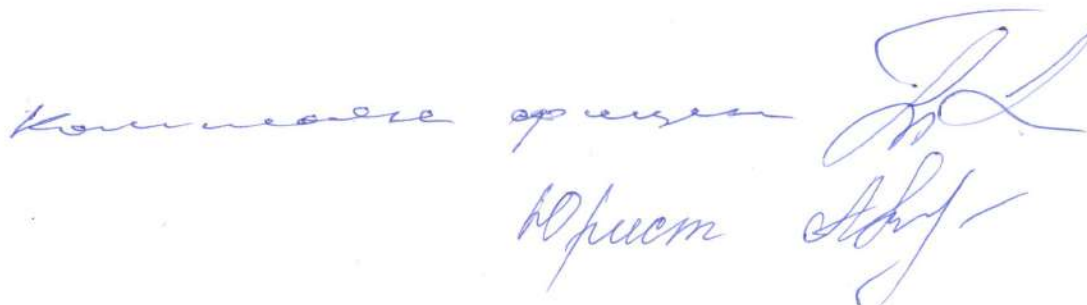 Комплаенс офицер
Юрист